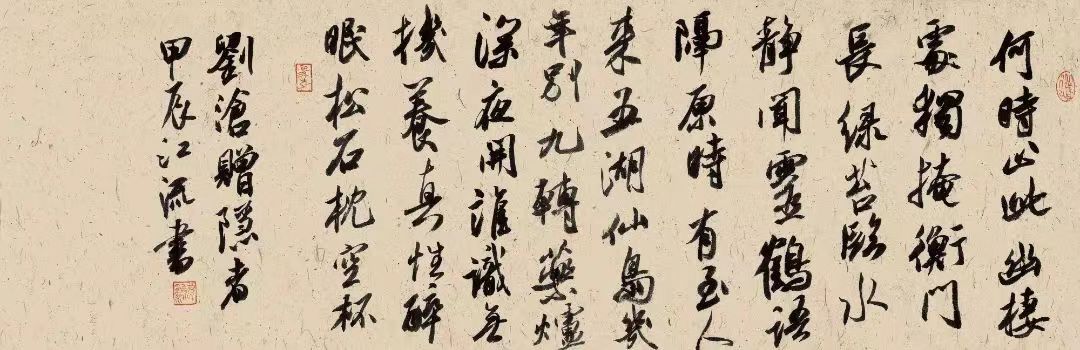 何時止此幽棲
處獨掩衡門
長绿苔臨水
靜聞靈鶴語
隔原時有至人
来五湖仙島幾
年别九轉藥爐
深夜開誰識無
機養真性醉
眠松石枕空杯
劉滄贈隱者
甲辰江流書